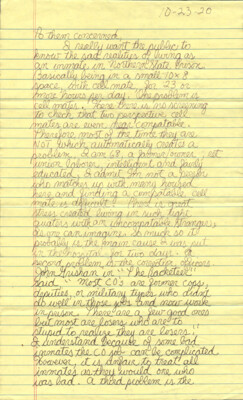 10-23-20
To them concerned,
I really want the public to
know the sad realities of living as
an inmate in Northern State Prison
Basically being in a small 10 x 8
space, with cell mate, for 23 or
more hours per day. One problem is
cell mates. There is no screening
to check that two perspective cell
mates are even compatable.
Therefore most of the time they are
NOT, which automatically creates a
problem. I am 68, a former
laborer, intelligent and
educated. I admit I'm not a person
who matches up with many housed
here and finding a compatable cell
mate is difficult. There is great
stress created living in such tight
quarters with an uncompatable stranger,
as you can imagine. So much so it
probably is the main cause I was put
in the hospital for two days. A
second problem is the
John Grisham in "The Racketeer"
said "Most COs are former cops,
deputies, or military types who didn't
do well in those jobs and now work
in prison. There are a few good ones
but most are losers who are to
stupid to realize they are losers."
I understand because of some bad
inmates the CO job can be complicated
however, it is unfair to treat all
inmates as they would one who
was bad. A third problem is the